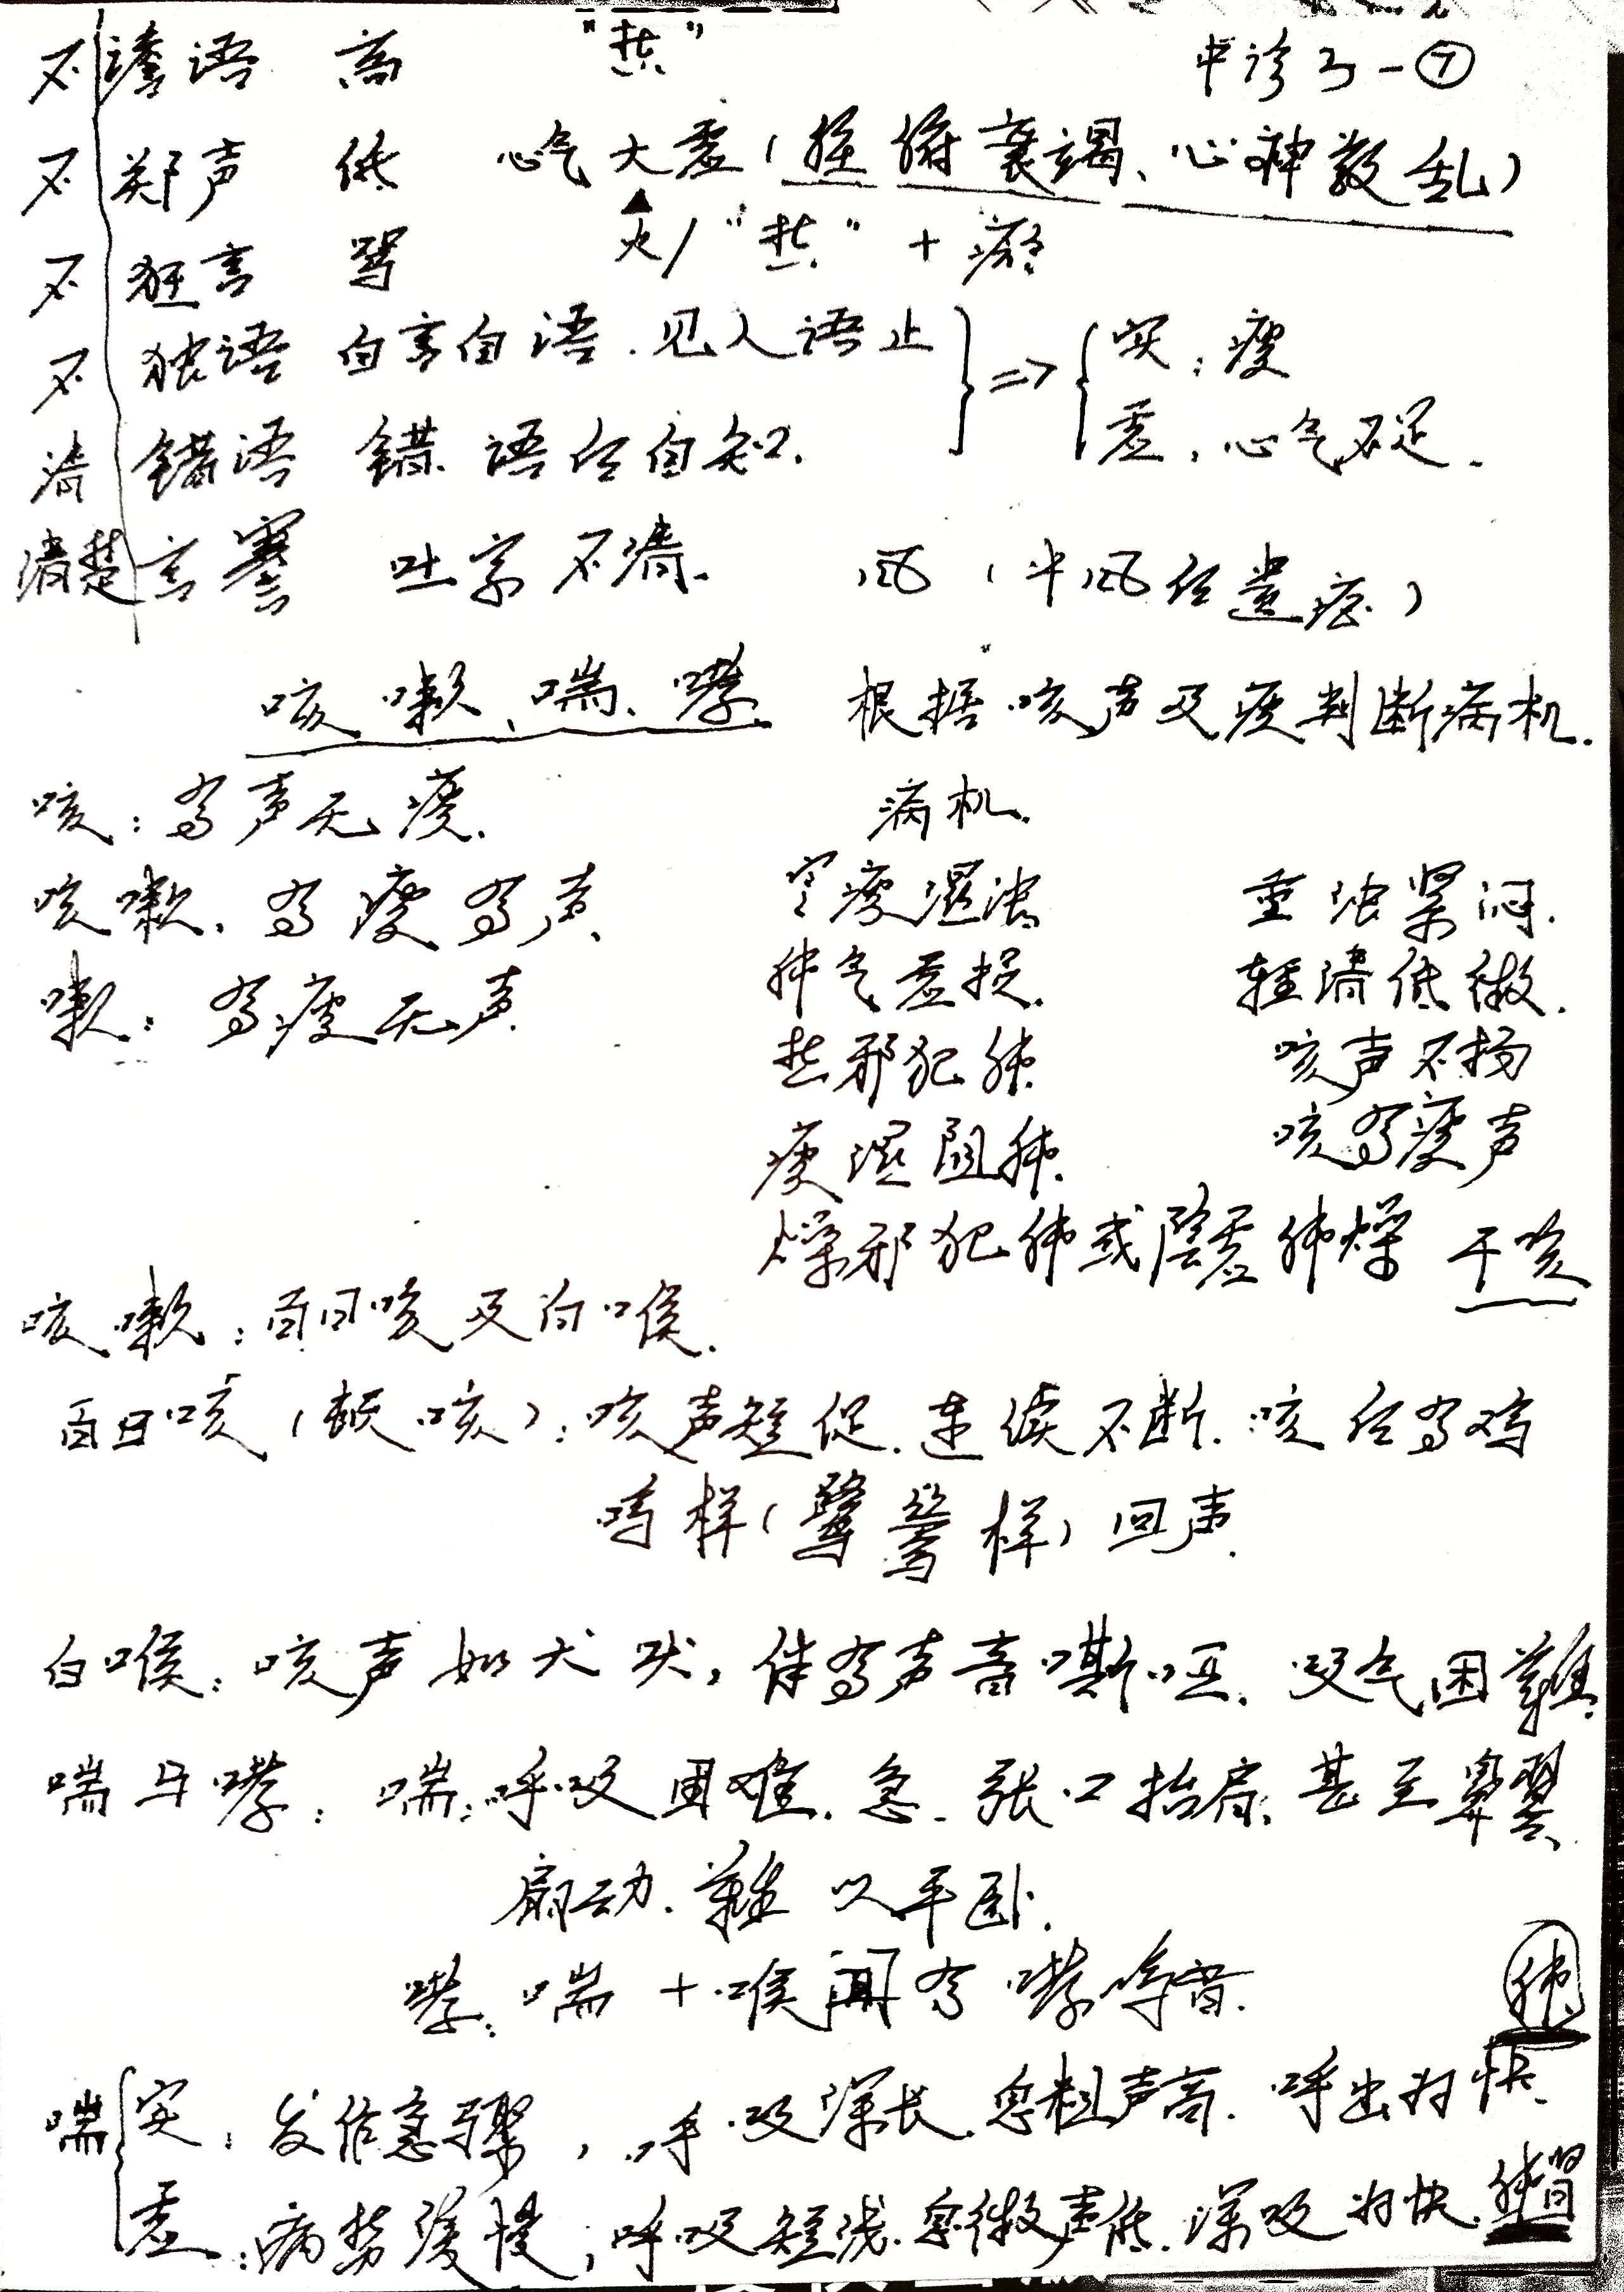 中诊3-⑦
不 谵语 高 "热"
不 郑声 低 心气大虚（脏腑衰竭、心神散乱）
不 狂言 骂 火/"热"+瘀
不 独语 自言自语.见人语止
清 错语 错语后自知.
} => { 实：痰
虚：心气不足.
清楚 言謇 吐字不清. 风（中风后遗症）
咳嗽、喘、哮 根据咳声及痰判断病机.
咳：有声无痰. 病机.
咳嗽.有痰有声 寒痰湿浊 重浊紧闷.
嗽：有痰无声 肺气虚损. 轻清低微.
热邪犯肺. 咳声不扬
痰湿阻肺. 咳有痰声
燥邪犯肺或陰虚肺燥 干咳
咳嗽：百日咳及白喉.
百日咳（顿咳）：咳声短促.连续不断.咳后有鸡
鸣样（鹭鸶样）回声.
白喉：咳声如犬吠，伴有声音嘶哑.吸气困難.
喘与哮：喘：呼吸困难.急.张口抬肩.甚至鼻翼
扇动.難以平卧.
哮：喘+喉间有哮鸣音.
喘{实：发作急骤，呼吸深长.息粗声高.呼出为快. 肺
虚：病势缓慢；呼吸短浅.息微声低.深吸为快.肺肾